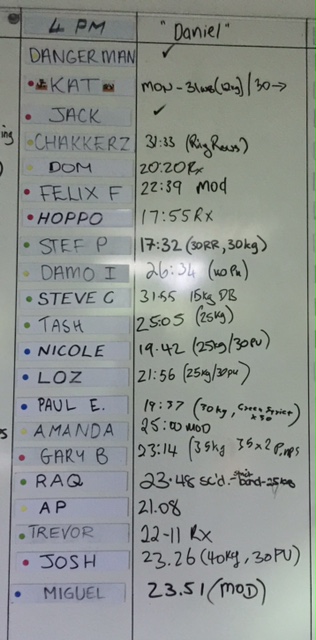 4 PM "Daniel"
DANGERMAN ✓
KAT MON - 31 /30→
JACK ✓
CHAKKERZ 31:33 (Ring Rows)
DOM 20:20 Rx
FELIX F 22:39 MOD
HOPPO 17:55 Rx
STEF P 17:32 (30RR, 30kg)
DAMO I 26:34
STEVE G 31:55 15kg DB
TASH 25:05 (25kg)
NICOLE 19.42 (25kg/30PU)
LOZ 21:56 (25kg/30PU)
PAUL E. 19:37 (30kg, Green
AMANDA 25:00 MOD
GARY B 23:14 (35kg 35x2
RAQ 23.48 sc'd. band
AP 21.08
TREVOR 22-11 Rx
JOSH 23.26 (40kg, 30PU)
MIGUEL 23.51 (MOD)
ing